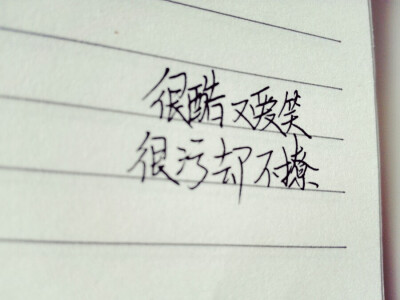 很酷又爱笑
很污却不撩